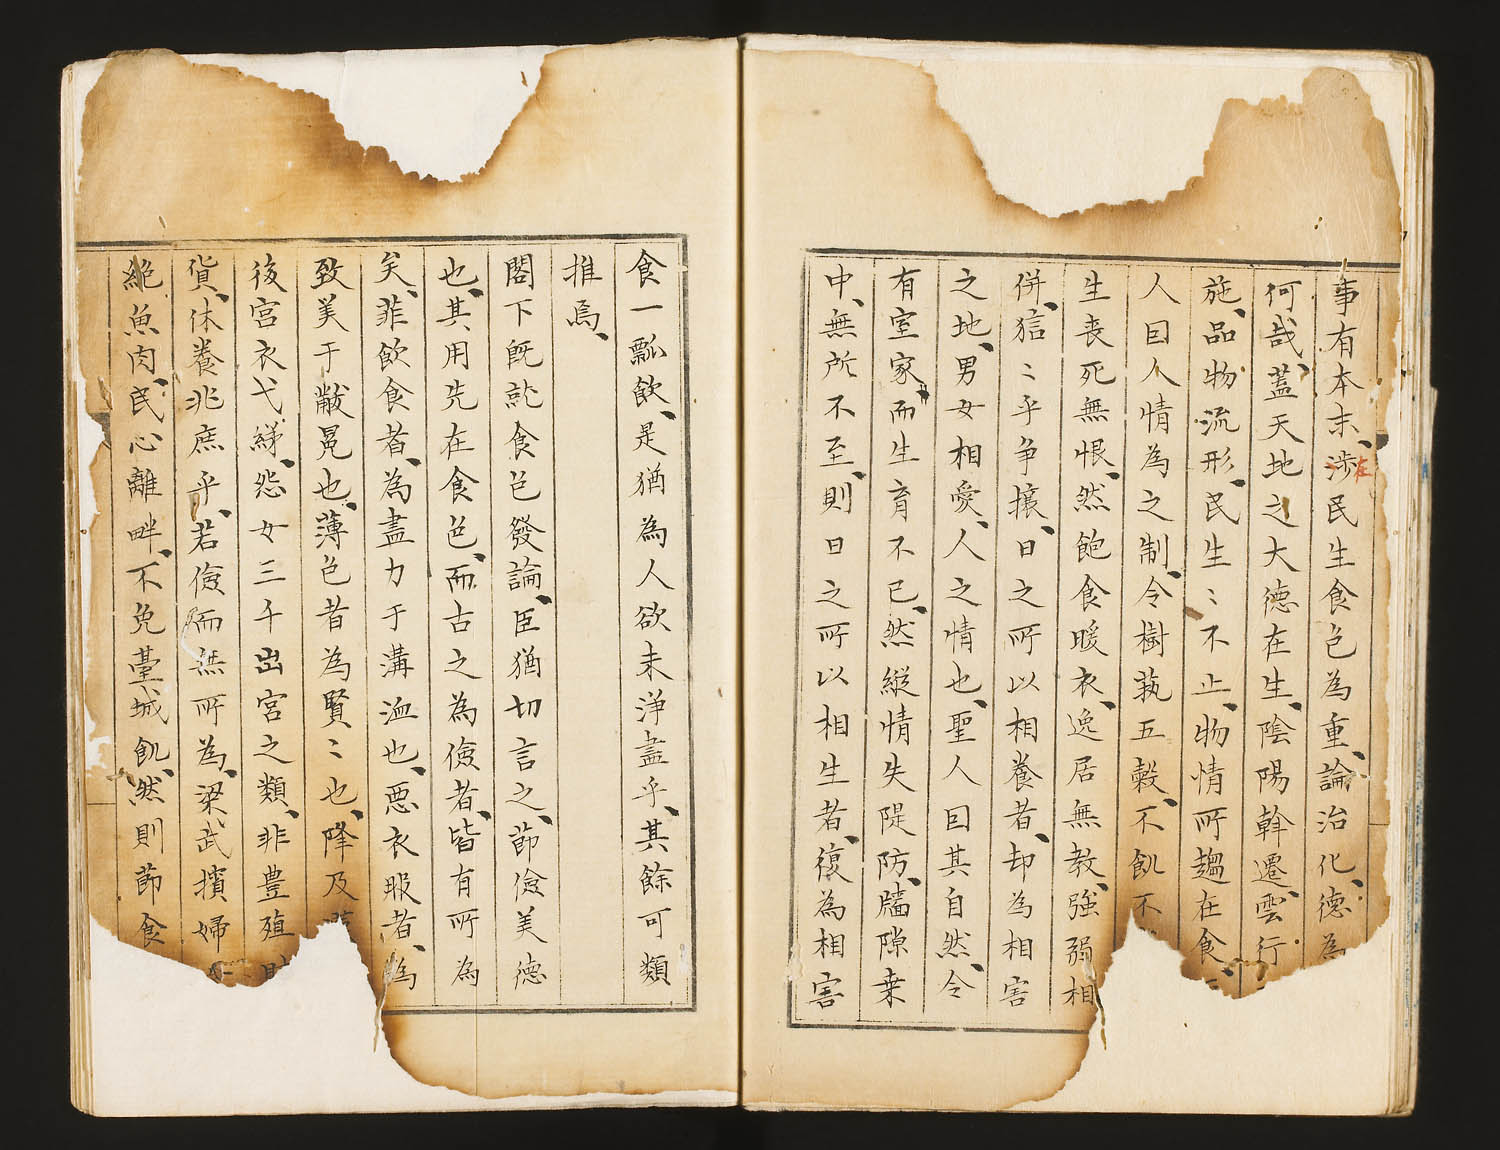 事有本末、涉民生食色為重、論治化、德為
在
何哉、蓋天地之大德在生、陰陽斡遷、雲行
施、品物流形、民生〻不止、物情所趨在食
人囙人情為之制、令樹蓺五穀、不飢不
生丧死無恨、然飽食暖衣、逸居無教、強弱相
併、狺〻乎争攘、日之所以相養者、却為相害
之地、男女相愛、人之情也、聖人囙其自然、令
有室家、而生育不已、然縱情失隄防、牗隙乗
中、無所不至、則日之所以相生者、復為相害
食一瓢飲、是猶為人欲未浄盡乎、其餘可類
推焉、
閣下既就食色發論、臣猶切言之、節儉美德
也、其用先在食色、而古之為儉者、皆有所為
矣、菲飲食者、為盡力于溝洫也、惡衣服者、為
致美于黻冕也、薄色者為賢〻也、降及
後宮衣弋綈、怨女三千出宮之類、非豊殖財
貨、休養兆庶乎、若儉而無所為、梁武擯婦
絶魚肉、民心離畔、不免臺城飢、然則節食